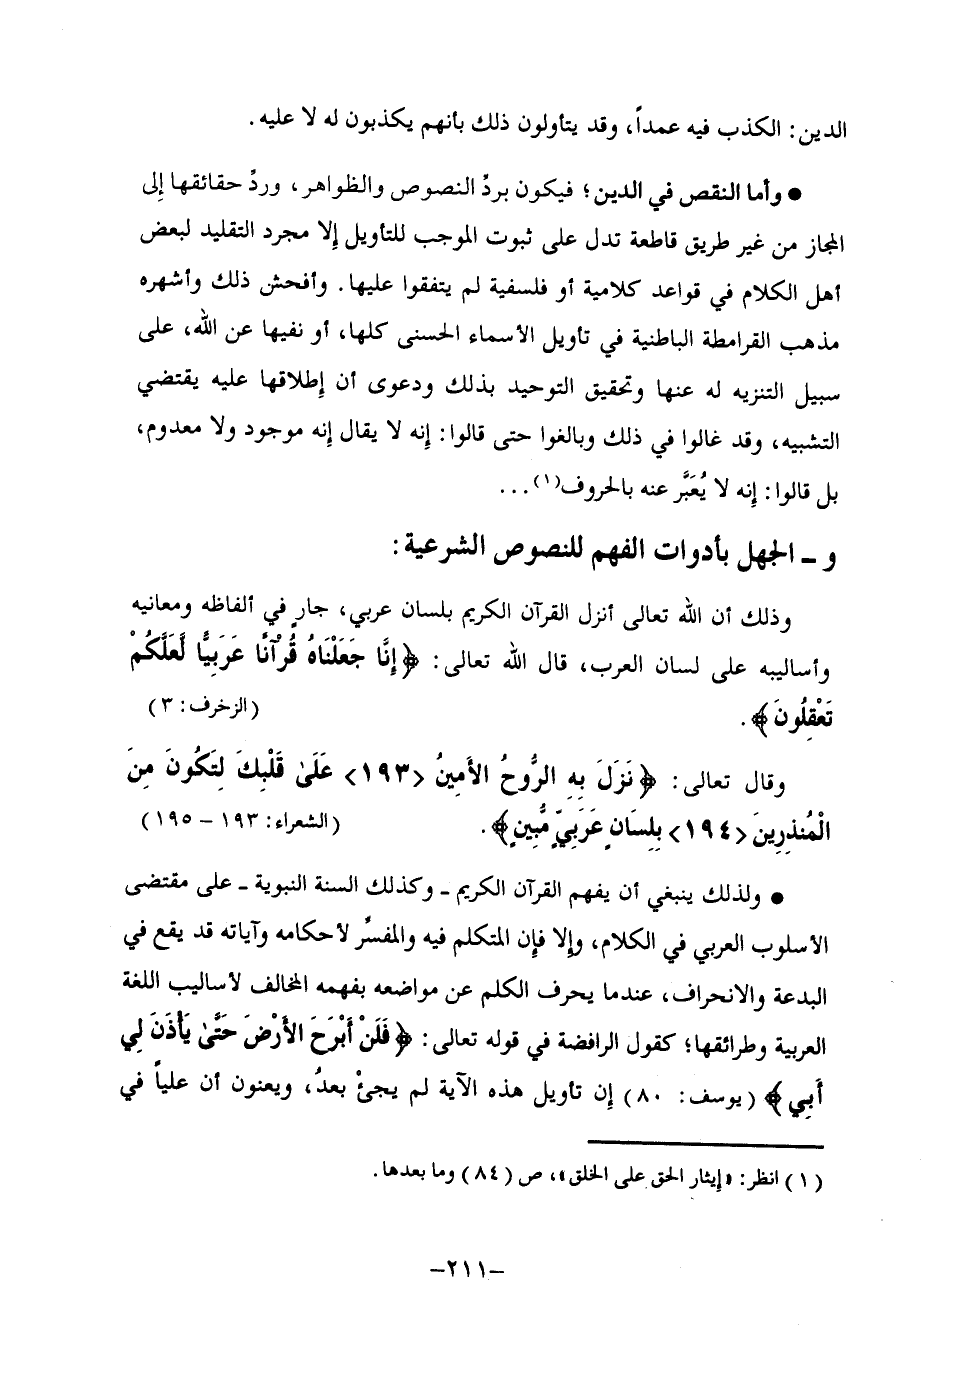 الدين: الكذب فيه عمداً، وقد يتأولون ذلك بأنهم يكذبون له لا عليه.
● وأما النقص في الدين؛ فيكون بردِّ النصوص والظواهر، وردِّ حقائقها إلى
المجاز من غير طريق قاطعة تدل على ثبوت الموجب للتأويل إلا مجرد التقليد لبعض
أهل الكلام في قواعد كلامية أو فلسفية لم يتفقوا عليها. وأفحش ذلك وأشهره
مذهب القرامطة الباطنية في تأويل الأسماء الحسنى كلها، أو نفيها عن الله، على
سبيل التنزيه له عنها وتحقيق التوحيد بذلك ودعوى أن إطلاقها عليه يقتضي
التشبيه، وقد غالوا في ذلك وبالغوا حتى قالوا: إنه لا يقال إنه موجود ولا معدوم،
بل قالوا: إنه لا يُعَبَّر عنه بالحروف(١)...
و ـ الجهل بأدوات الفهم للنصوص الشرعية:
وذلك أن الله تعالى أنزل القرآن الكريم بلسان عربي، جارٍ في ألفاظه ومعانيه
وأساليبه على لسان العرب، قال الله تعالى: ﴿إِنَّا جَعَلْنَاهُ قُرْآنًا عَرَبِيًّا لَّعَلَّكُمْ
تَعْقِلُونَ﴾. (الزخرف: ٣)
وقال تعالى: ﴿نَزَلَ بِهِ الرُّوحُ الأَمِينُ <١٩٣> عَلَىٰ قَلْبِكَ لِتَكُونَ مِنَ
الْمُنذِرِينَ <١٩٤> بِلِسَانٍ عَرَبِيٍّ مُّبِينٍ﴾. (الشعراء: ١٩٣ - ١٩٥)
● ولذلك ينبغي أن يفهم القرآن الكريم ـ وكذلك السنة النبوية ـ على مقتضى
الأسلوب العربي في الكلام، وإلا فإن المتكلم فيه والمفسِّر لأحكامه وآياته قد يقع في
البدعة والانحراف، عندما يحرف الكلم عن مواضعه بفهمه المخالف لأساليب اللغة
العربية وطرائقها؛ كقول الرافضة في قوله تعالى: ﴿فَلَنْ أَبْرَحَ الأَرْضَ حَتَّىٰ يَأْذَنَ لِي
أَبِي﴾ (يوسف: ٨٠) إن تأويل هذه الآية لم يجئْ بعدُ، ويعنون أن علياً في
(١) انظر: «إيثار الحق على الخلق»، ص (٨٤) وما بعدها.
-٢١١-